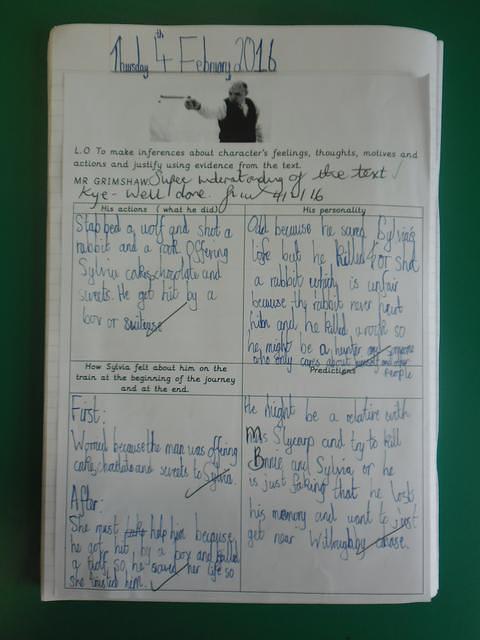 Thursday 4th February 2016
L.O To make inferences about character's feelings, thoughts, motives and
actions and justify using evidence from the text.
MR GRIMSHAW Super understanding of the text
Kye- Well done.
His actions (what he did)
Stabbed a wolf and shot a
rabbit and a rook. Offering
Sylvia cakes, chocolate and
sweets. He got hit by a
box or suitcase
His personality
Odd because he saved Sylvia's
life but he killed or shot
a rabbit which is unfair
because the rabbit never hurt
him and he killed a rook so
he might be a hunter or someone
who only cares about himself and other
people
How Sylvia felt about him on the
train at the beginning of the journey
and at the end.
First:
Worried because the man was offering
cake, chocolate and sweets to Sylvia.
After:
She must help him because
he got hit by a box and killed
a wolf so, he saved her life so
she trusted him.
Predictions
He might be a relative with
Miss Slycarp and try to kill
Bonnie and Sylvia or he
is just faking that he lost
his memory and want to just
get near Willoughby chase.